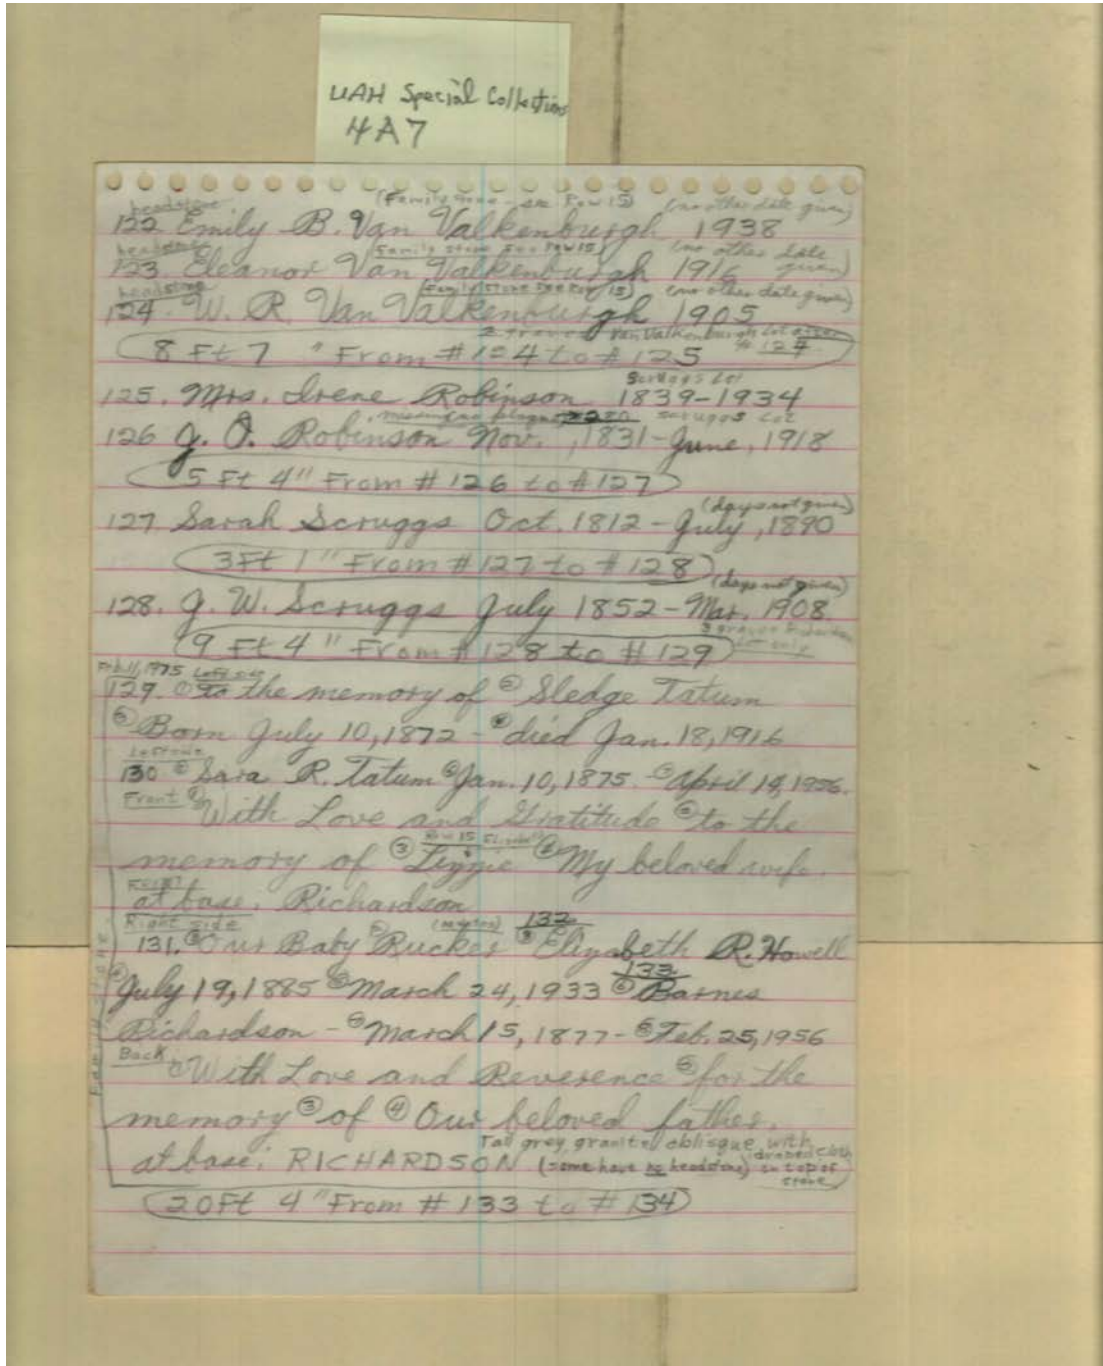 UAH Special Collections
4A7
headstone (Family stone - see Row 15) (no other date given)
122. Emily B. Van Valkenburgh 1938
headstone (Family stone see row 15) (no other date given)
123. Eleanor Van Valkenburgh 1916
headstone (Family stone see Row 15) (no other date given)
124. W. R. Van Valkenburgh 1905
2 graves Van Valkenburgh Lot
8 Ft 7 " From # 124 to # 125 # 124
Scruggs Lot
125. Mrs. Irene Robinson 1839-1934
Scruggs Lot
126 J. O. Robinson Nov. , 1831 - June, 1918
5 Ft 4" From # 126 to # 127
(days not given)
127 Sarah Scruggs Oct. 1812 - July, 1890
3 Ft 1 " From # 127 to # 128
(days not given)
128. J. W. Scruggs July 1852 - Mar. 1908.
3 graves Richardson
9 Ft 4 " From # 128 to # 129 Lot only
Feb. 11, 1975 Left side
129. ① To the memory of ② Sledge Tatum
③ Born July 10, 1872 - ④ died Jan. 18, 1916
130 ⑤ Sara R. Tatum ⑥ Jan. 10, 1875 - ⑦ April 19, 1956.
Front ① With Love and Gratitude ② to the
Row 15 Elizabeth
memory of ③ Lizzie ④ My beloved wife.
Front
at base. Richardson
Right side 132
131. ① Our Baby ② Rucker ③ Elizabeth R. Howell
133
④ July 19, 1885 ⑤ March 24, 1933 ⑥ Barnes
Richardson - ⑦ March 15, 1877 - ⑧ Feb. 25, 1956
Back ① With Love and Reverence ② for the
memory ③ of ④ Our beloved father.
Tall grey granite oblisque with draped cloth
at base: RICHARDSON (some have no headstone) on top of stone
20 Ft 4 " From # 133 to # 134